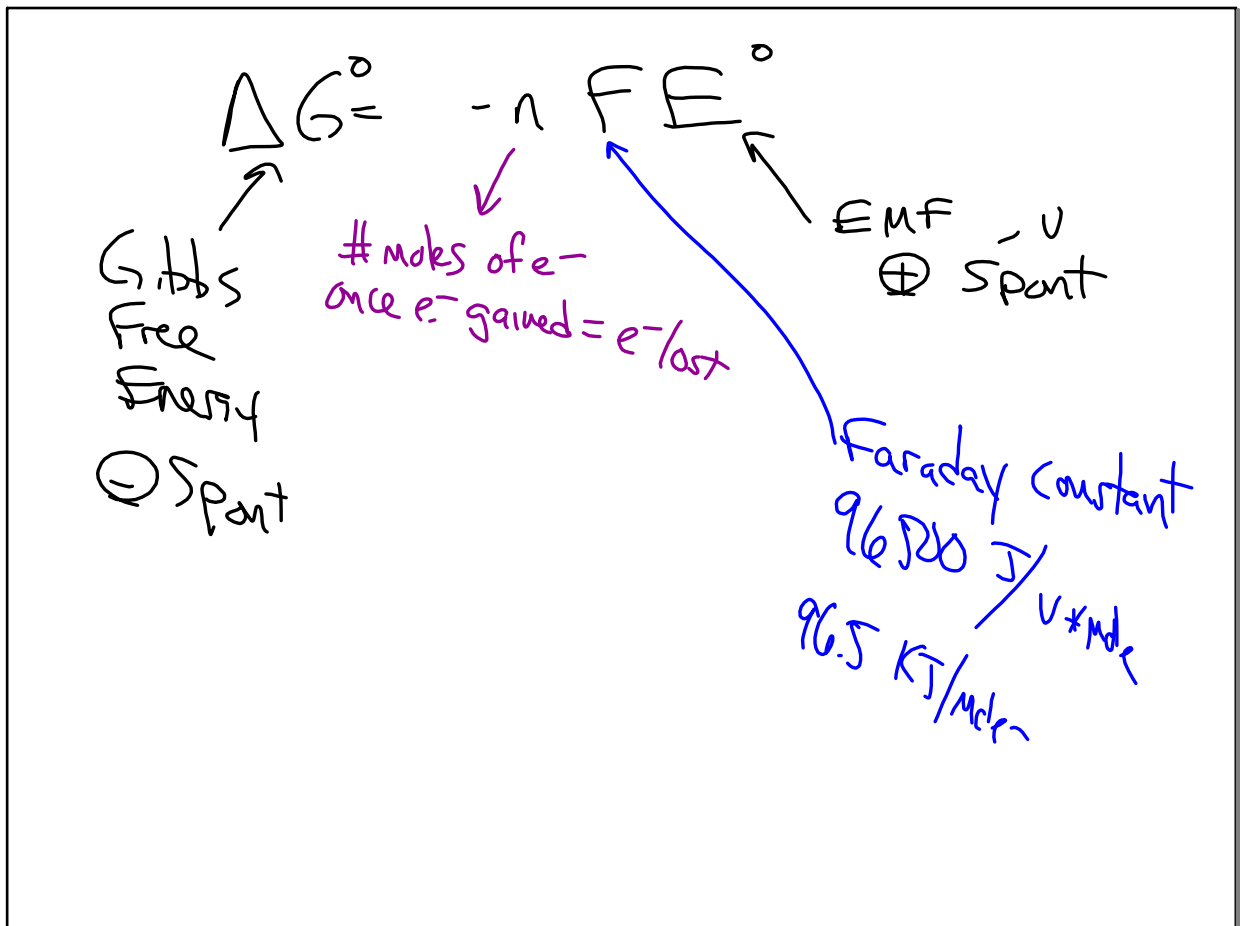 ΔG° = -n FE°
Gibbs
Free
Energy
⊖ Spont
# moles of e-
once e- gained = e- lost
EMF, V
⊕ Spont
Faraday Constant
96500 J/V*mole
96.5 KJ/mole